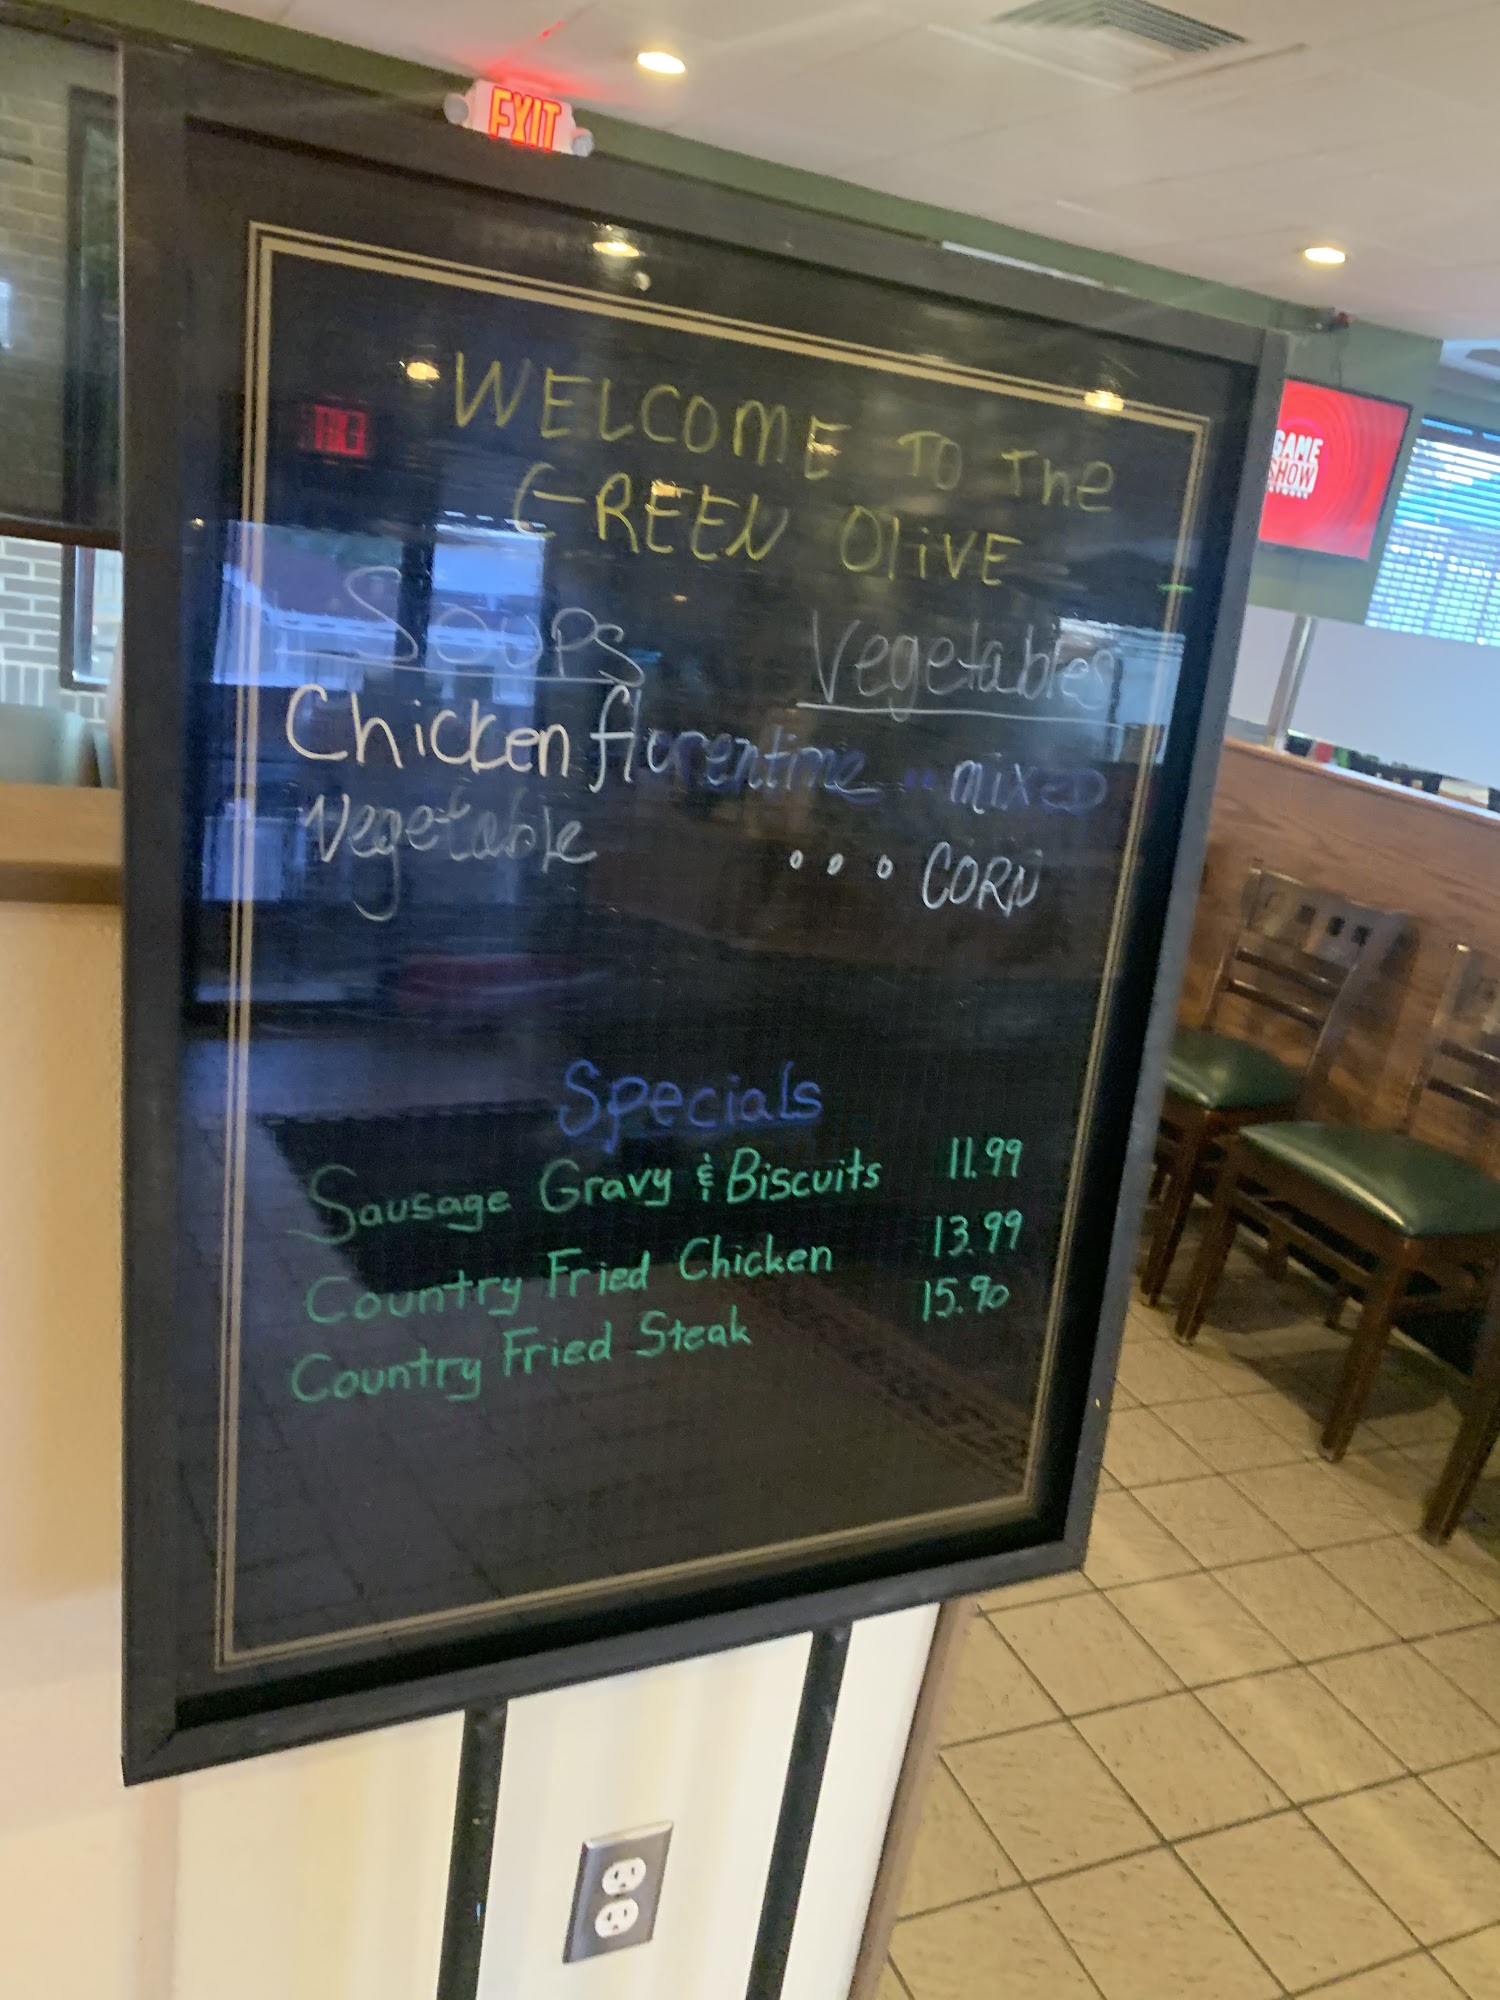 EXIT
WELCOME TO The
GREEN OliVE
Soups
Chicken florentine
Vegetable
Vegetables
.. mixED
... CORN
Specials
Sausage Gravy & Biscuits 11.99
Country Fried Chicken 13.99
Country Fried Steak 15.90
GAME
SHOW
NETWORK